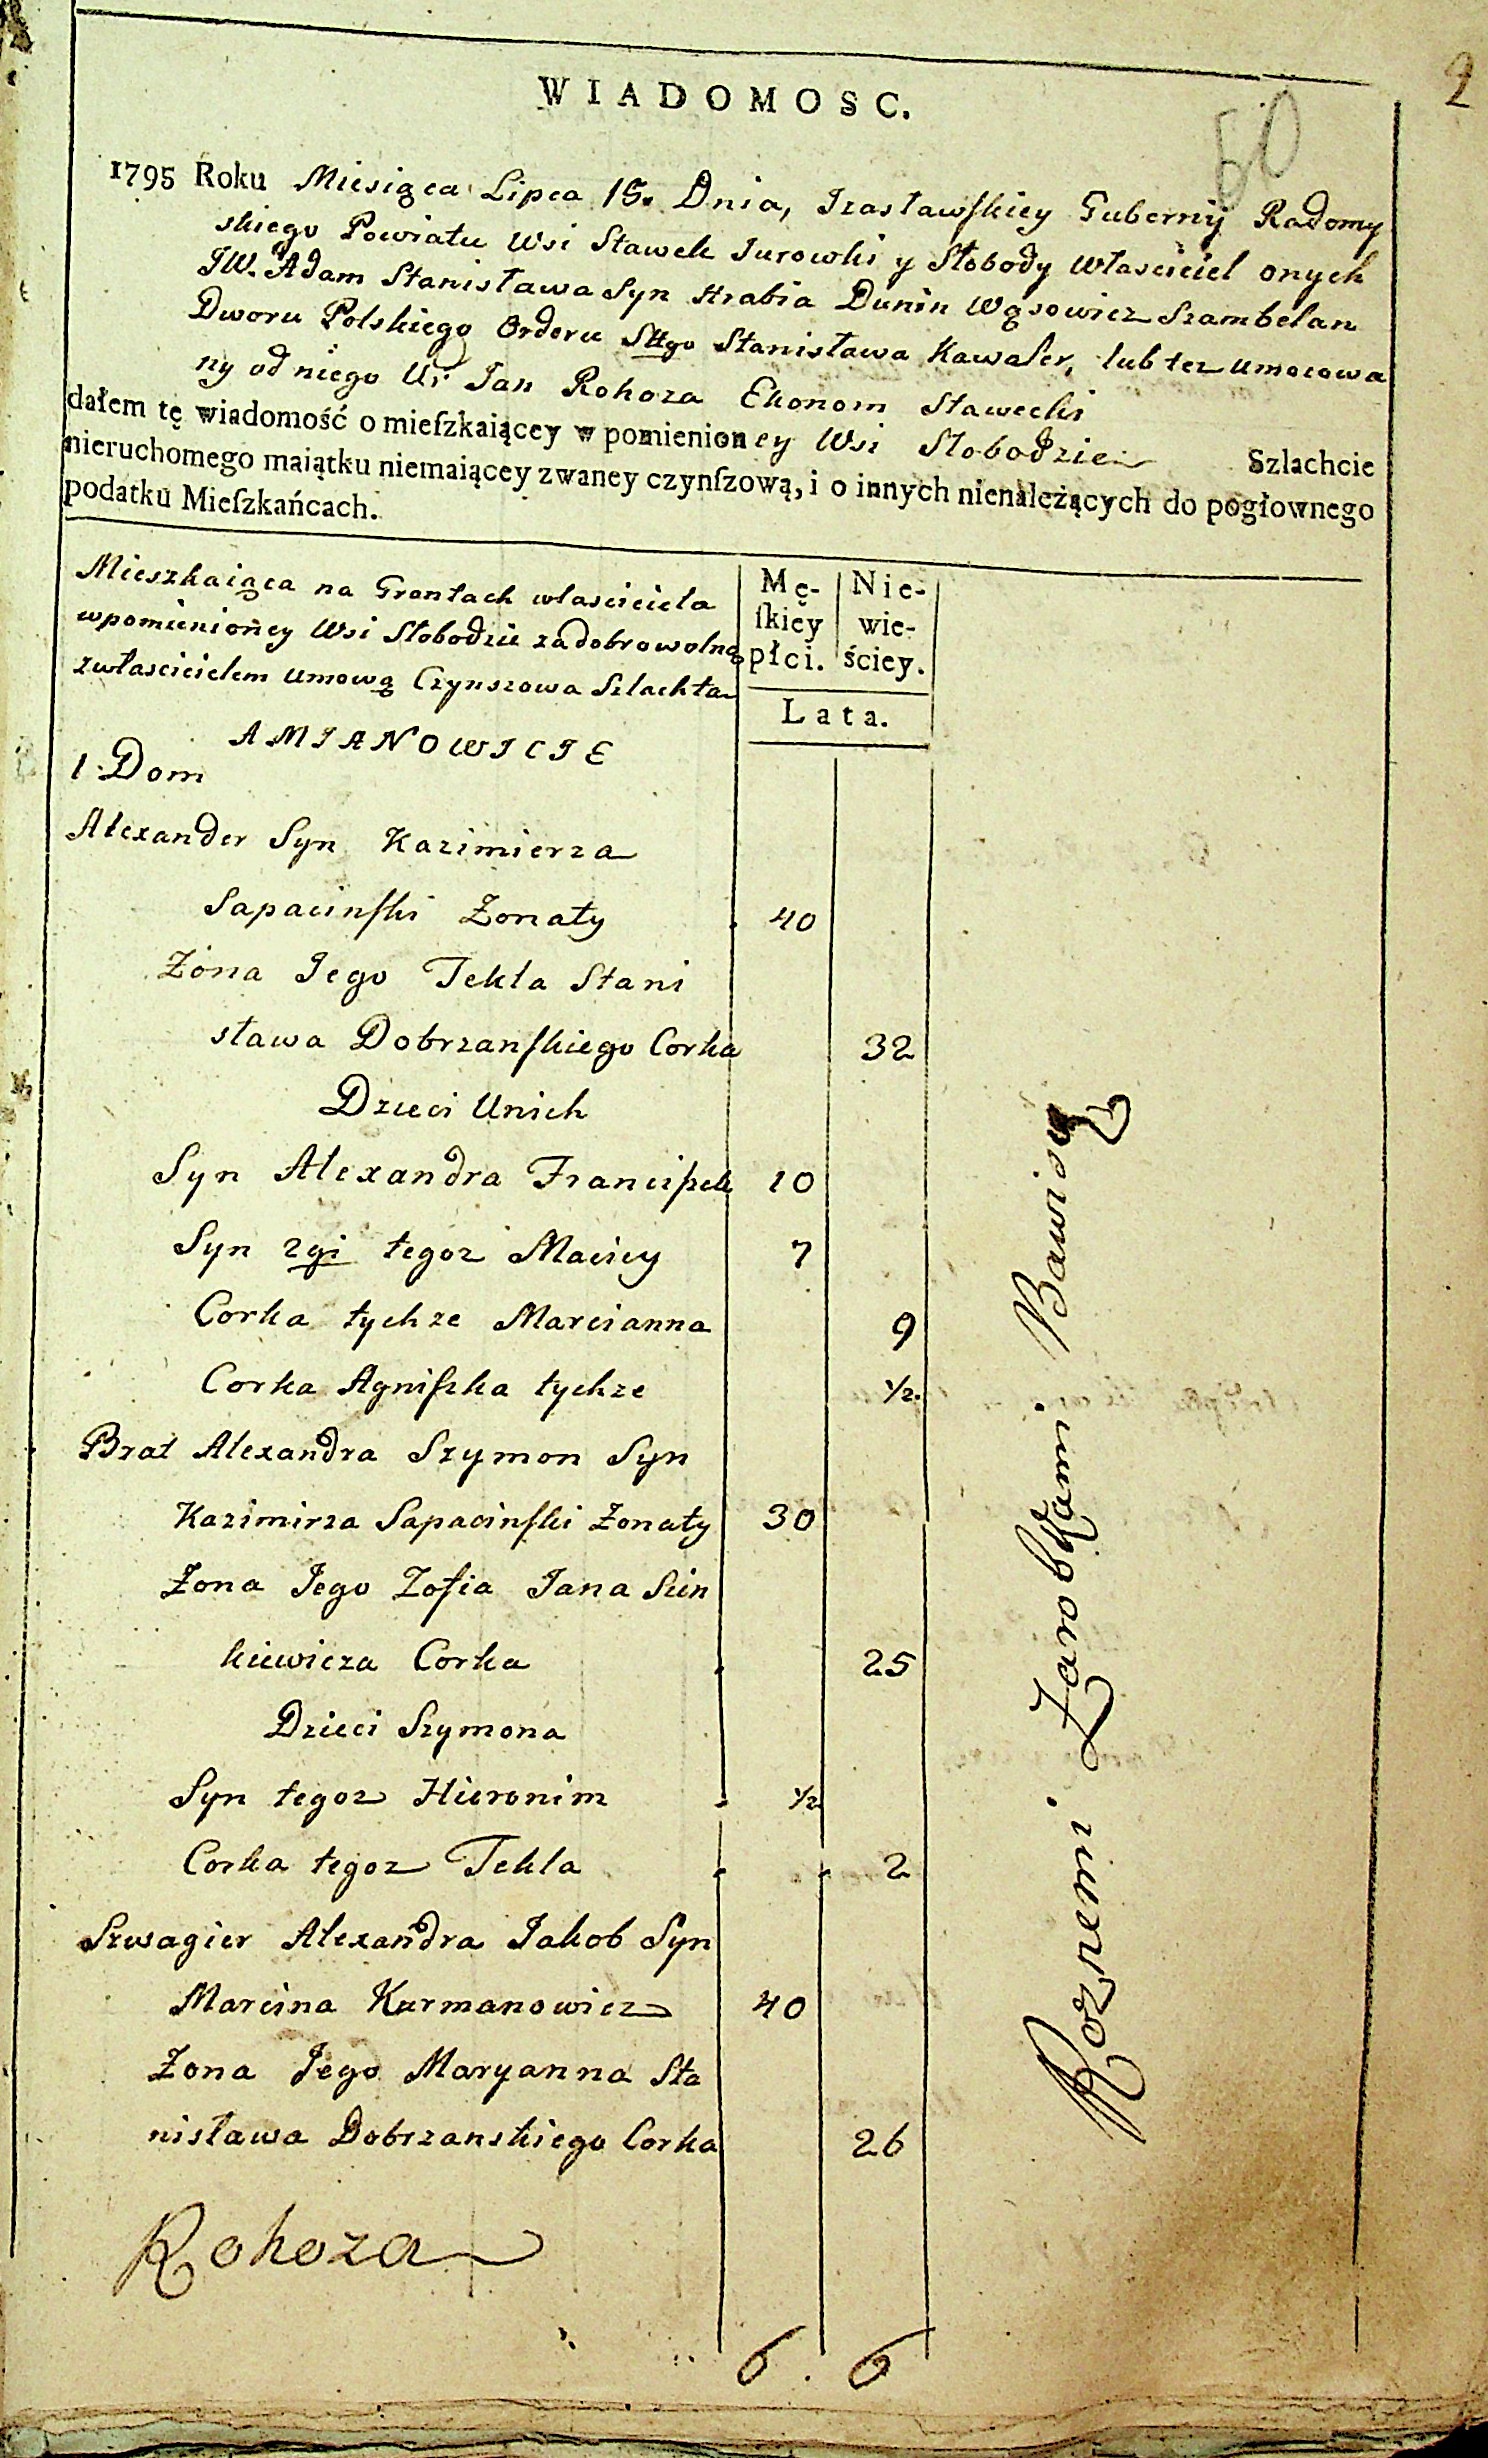 2
60
WIADOMOSC.
1795 Roku Miesiąca Lipca 15. Dnia, Izasławſkiey Gubernij Radomy
skiego Powiatu Wsi Stawek Iurowki y Słobody Własciciel onych
JW. Adam Stanisława Syn Hrabia Dunin Wąsowicz Szambelan
Dworu Polskiego Orderu Sttgo Stanisława Kawaler, lub tez umocowa
ny od niego Ur Jan Rohoza Ekonom Stawecki
dałem tę wiadomość o mieſzkaiącey w pomienioney Wsi Słobodzie Szlachcie
nieruchomego maiątku niemaiącey zwaney czynſzową, i o innych nienależących do pogłownego
podatku Mieſzkańcach.
Mieszkaiąca na Gruntach własciciela
wpomienioney Wsi Słobodzie zadobrowolną
zwłascicielem umową Czynszowa Szlachta
Mę-
ſkiey
płci.
Nie-
wie-
ściey.
Lata.
AMIANOWICIE
1 Dom
Alexander Syn Kazimierza
Sapacinſki Żonaty 40
Żona Iego Tekla Stani
sława Dobrzanſkiego Corka 32
Dzieci Unich
Syn Alexandra Franciſzek 10
Syn 2gi tegoz Maciey 7
Corka tychze Marcianna 9
Corka Agniſzka tychze 1/2.
Brat Alexandra Szymon Syn
Kazimirza Sapacinſki Żonaty 30
Żona Iego Zofia Iana Sien
kiewicza Corka 25
Dzieci Szymona
Syn tegoz Hieronim 1/2
Corka tegoz Tekla 2
Szwagier Alexandra Iakob Syn
Marcina Kurmanowicz 40
Żona Iego Maryanna Sta
nisława Dobrzanskiego Corka 26
Roznemi Zarobkami Bawisię
Rohoza
6. 6